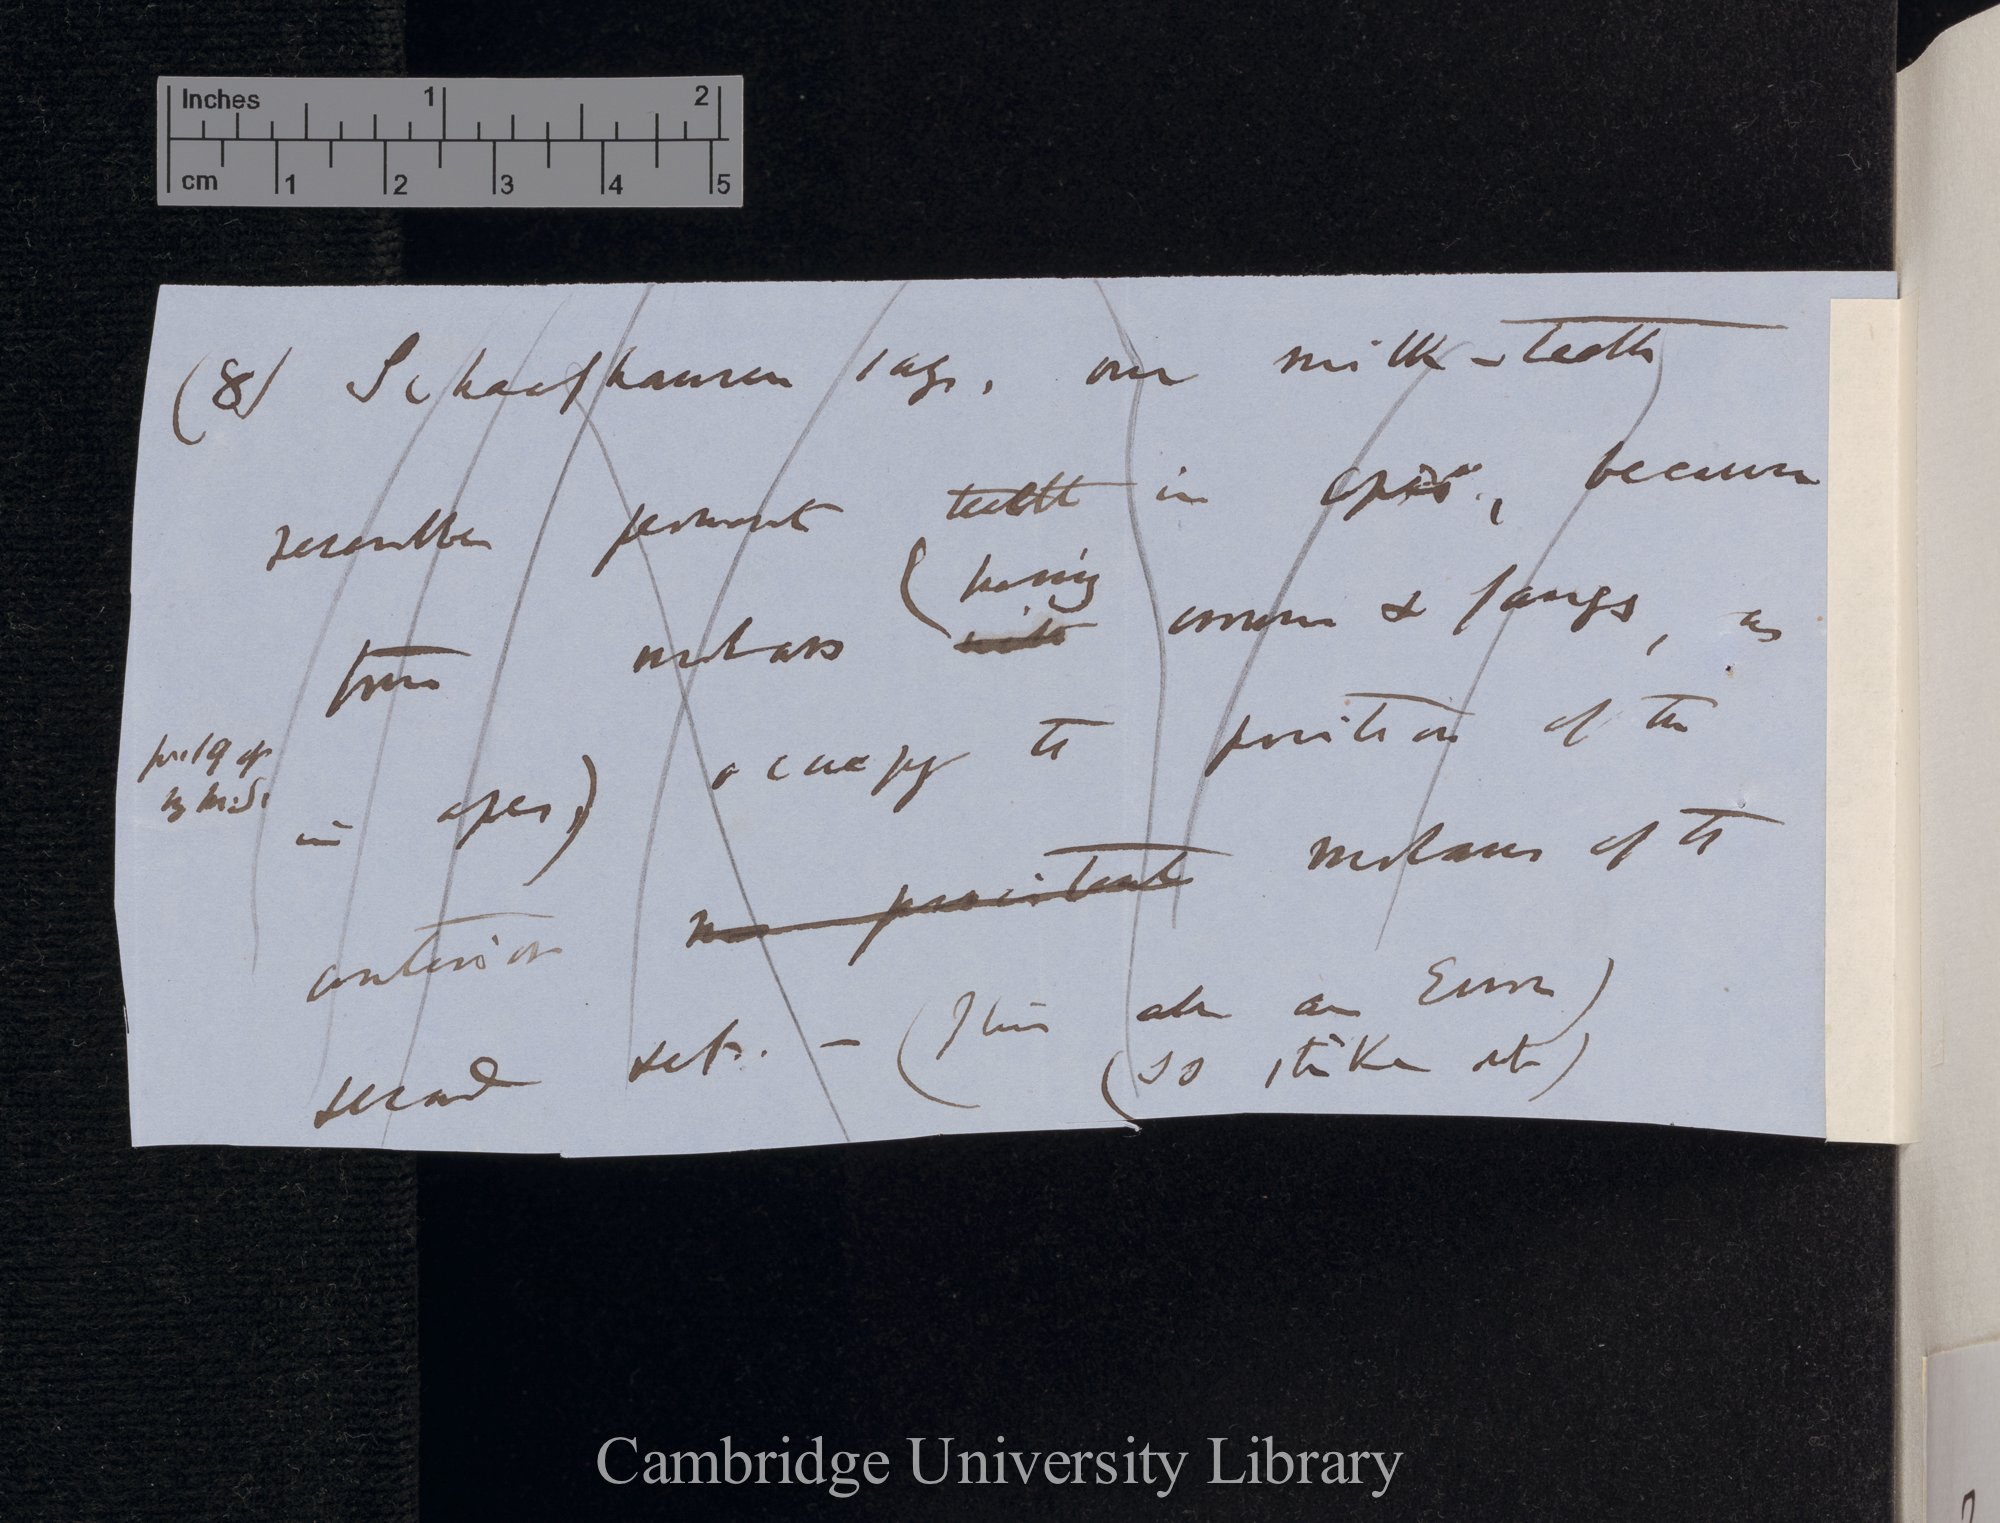 Inches 1 2
cm 1 2 3 4 5
(8) Schaafhausen says, our milk-teeth
resembles permanent teeth in apes, because
(having
true molars with crown & fangs, as
in apes) occupy the position of the
anterior persistent molars of the
second set. — (This also an Error)
(so strike out)
Cambridge University Library